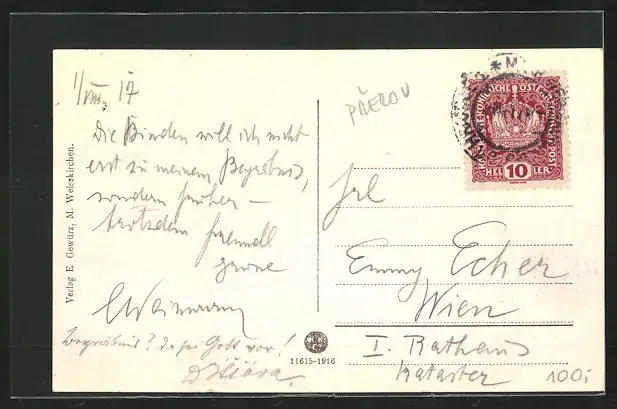 1/VIII. 17
Die Binden will ich nicht
erst zu meinem Begräbnis,
sondern früher –
trotzdem
Begräbnis? da sei Gott vor!
Verlag E. Gewürz, M. Weisskirchen.
11615-1916
PŘEROV
KAISERLICHE KÖNIGLICHE ÖSTERREICHISCHE POST
HELLER
10
Frl
Emmy Echer
Wien
I. Rathaus
Kataster
100,-